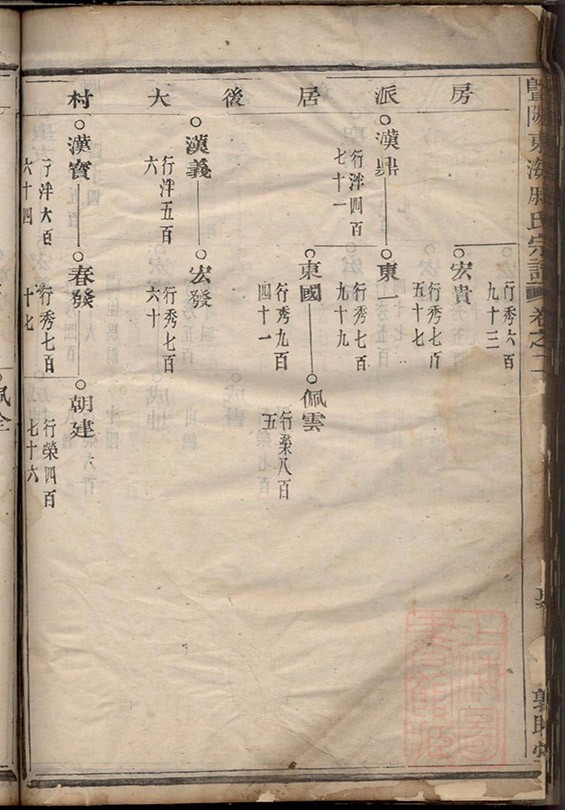 暨陽東海戚氏宗譜 卷之二
房派居後大村
行秀六百九十三
宏貴 行秀七百五十七
漢鼎 行泮四百七十一
東一 行秀七百九十九
東國 行秀九百四十一
佩雲 行榮八百五
漢義 行泮五百六
宏發 行秀七百六十
漢寶 行泮六百六十四
春發 行秀七百十七
朝建 行榮四百七十六